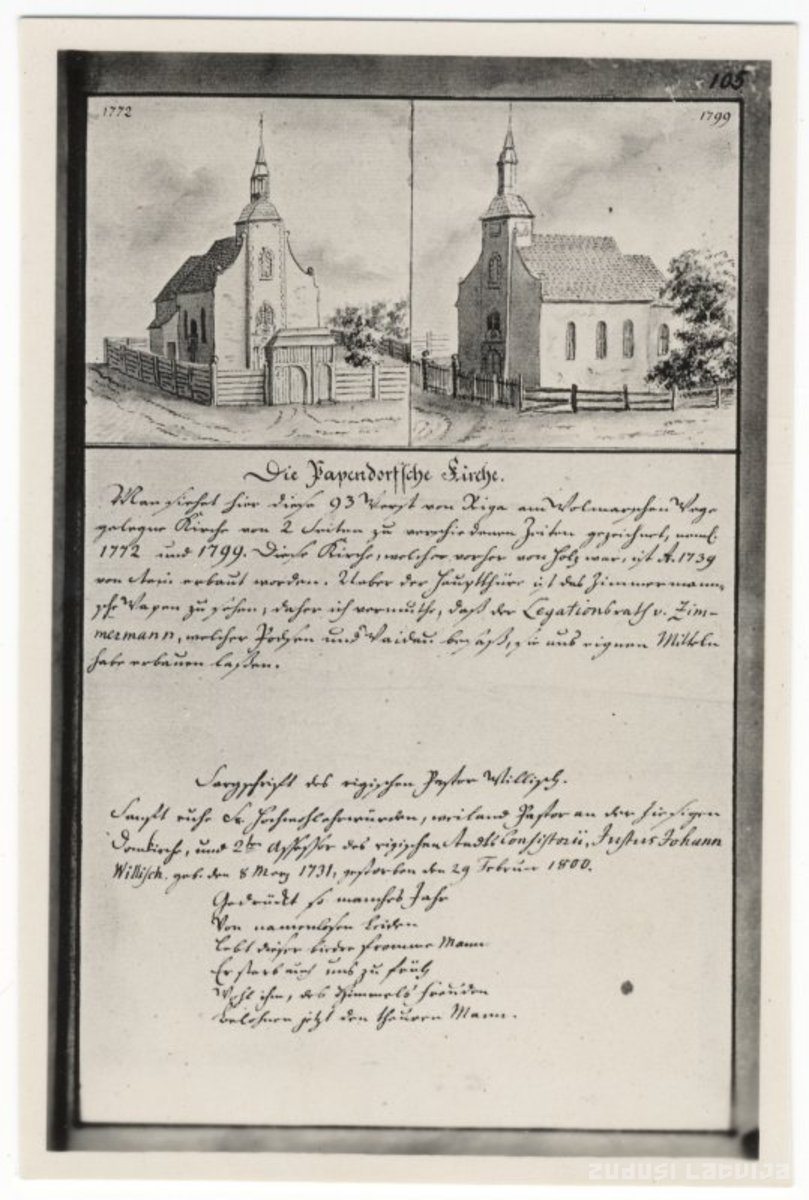 105
1772
1799
Die Papendorffsche Kirche.
Man siehet hier diese 93 Werst von Riga am Wolmarschen Wege
gelegne Kirche von 2 Seiten zu verschiedenen Zeiten gezeichnet, neml.
1772 und 1799. Diese Kirche, welche vorher von Holz war, ist A. 1739
von Stein erbaut worden. Ueber der Hauptthüre ist das Zimmermann-
sche Wapen zu sehen, daher ich vermuthe, daß der Legationsrath v. Zim-
mermann, welcher Podsen und Waidau besaß, sie aus eignen Mitteln
habe erbauen laßen.
Sargschrift des rigischen Pastor Willisch.
Sanft ruhe Se. Hochwohlehrwürden, weiland Pastor an der hiesigen
Domkirche, und 2ter Assessor des rigischen Stadts Consistorii, Justus Johann
Willisch, geb. den 8 Merz 1731, gestorben den 29 Februar 1800.
Gedrückt so manches Jahr
Von namenlosen Leiden
Lebt dieser biedre fromme Mann
Er starb auch uns zu früh
Wohl ihm, des Himmels Freuden
Belohnen jetzt den theuren Mann.
ZUDUSI LATVIJA